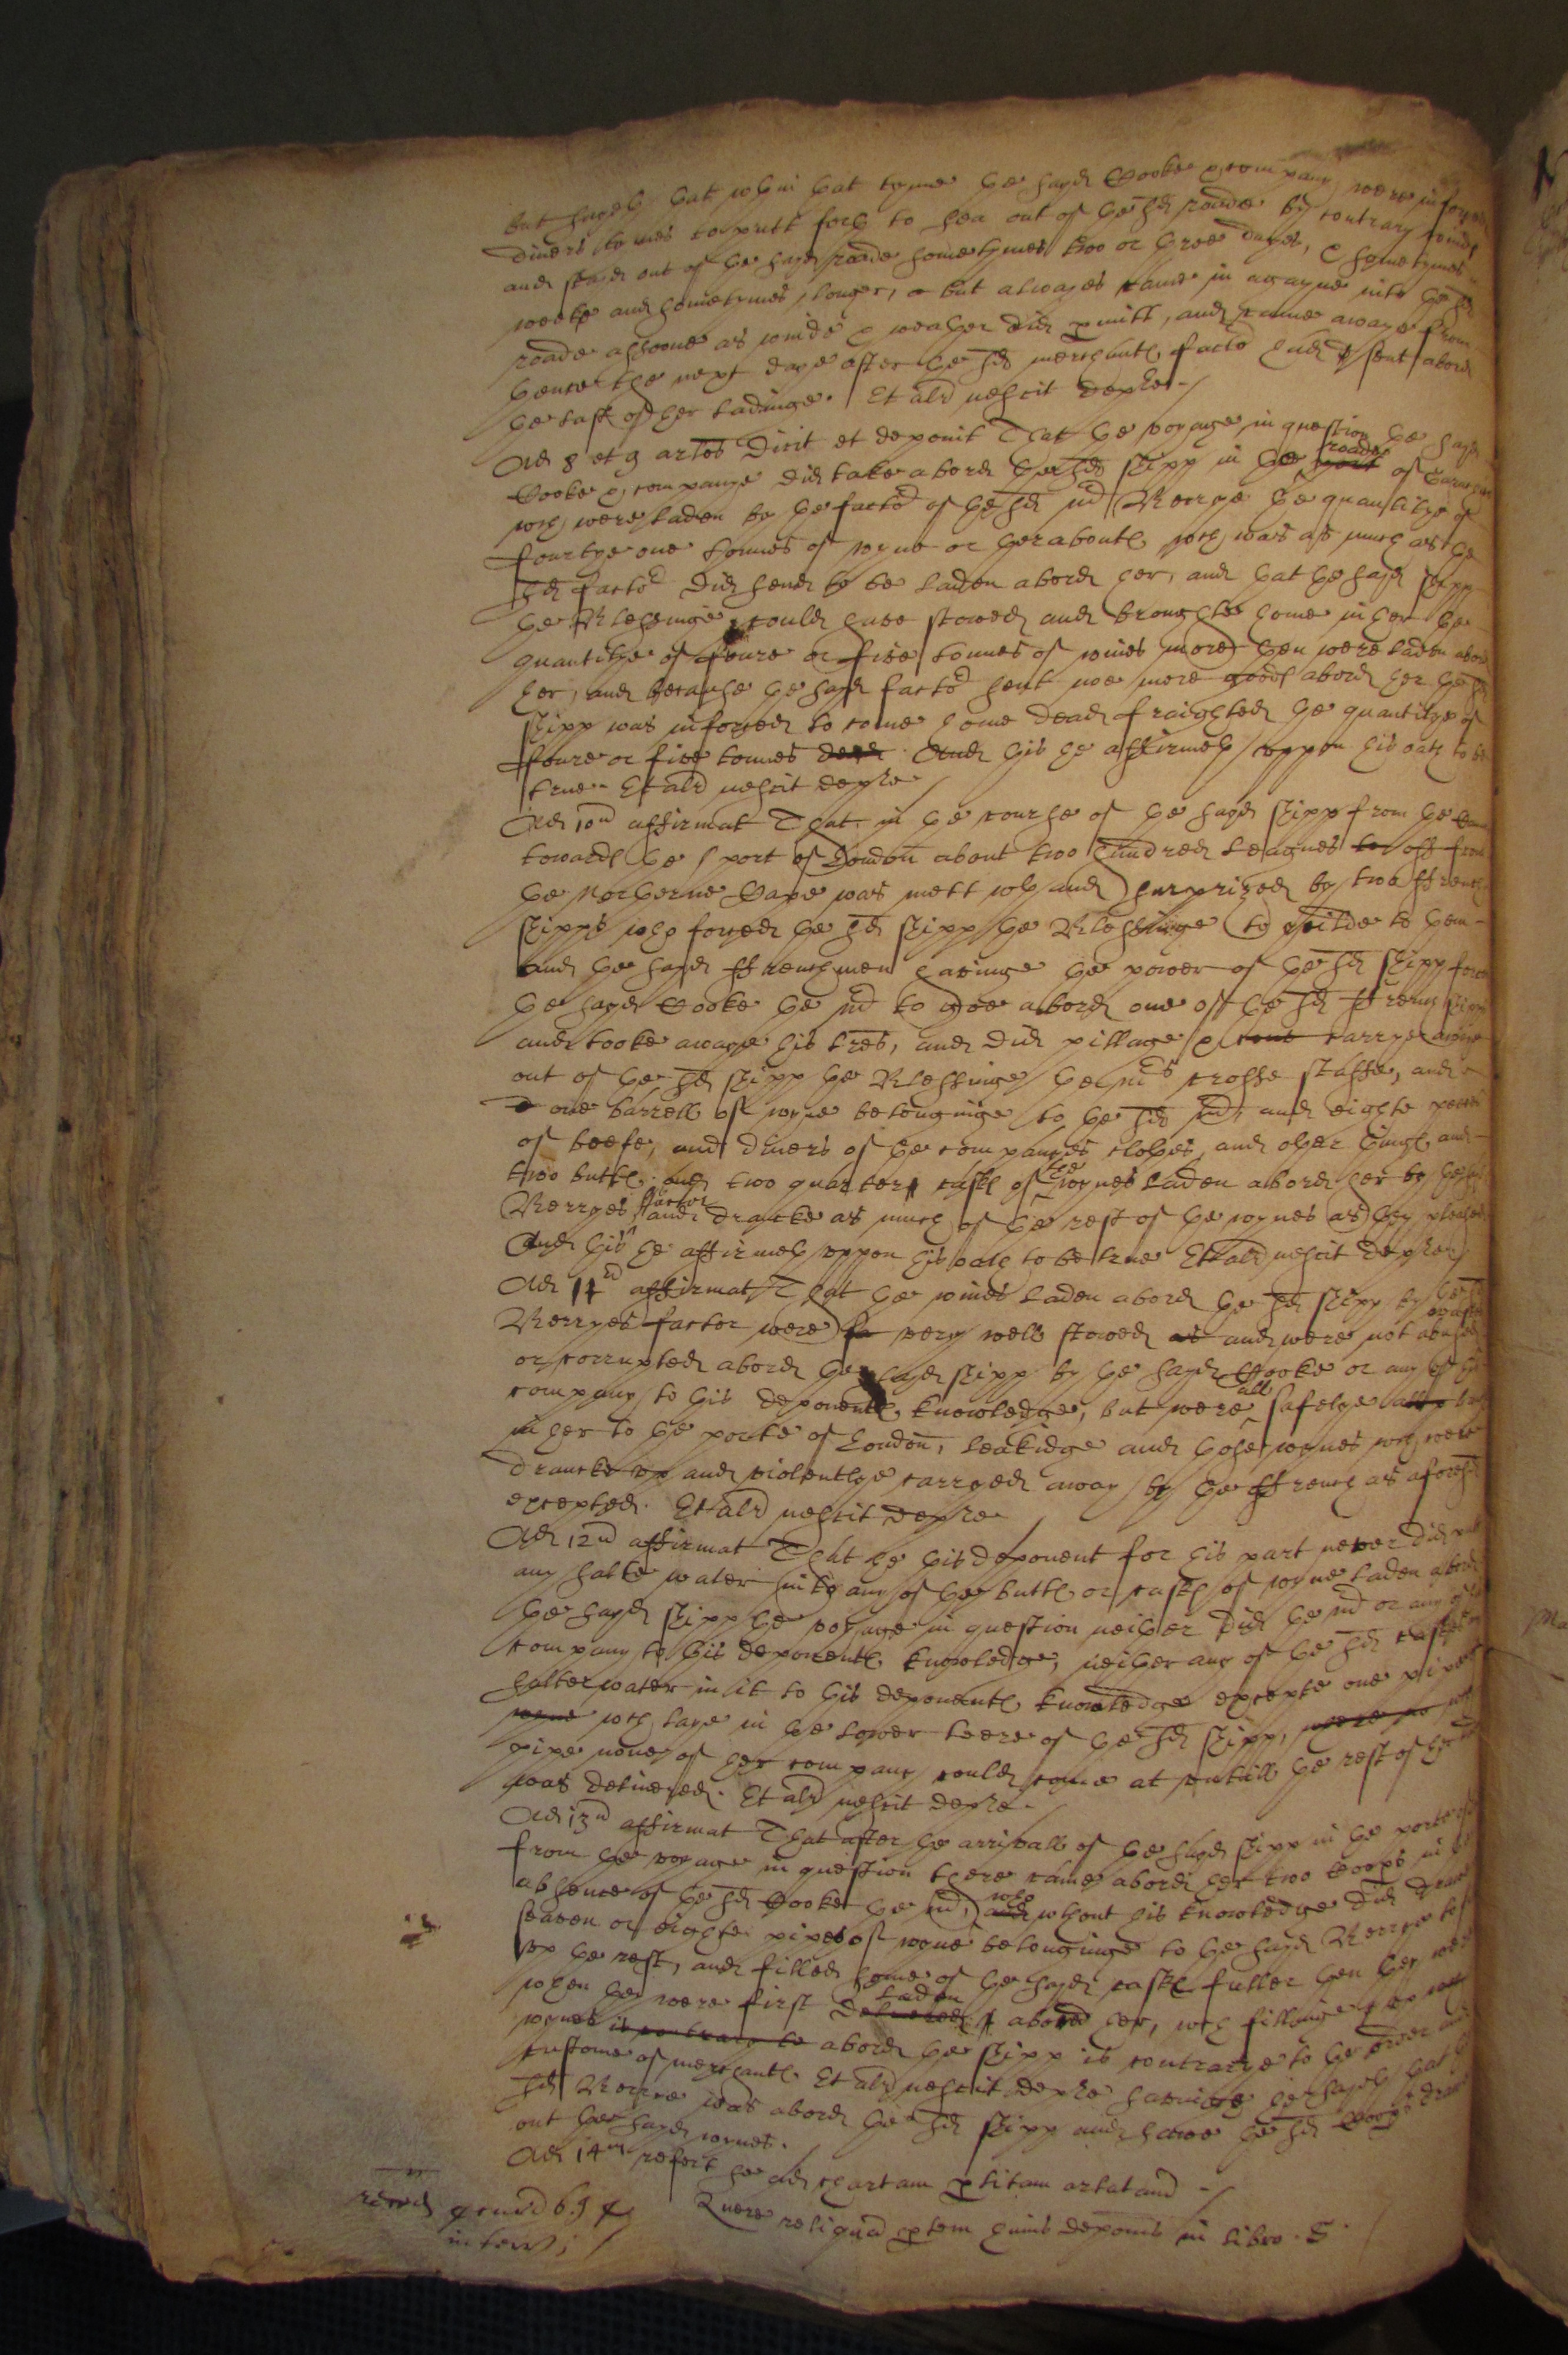 but sayeth that within that tyme the sayd Cooke & company were inforced
divers tymes to putt forth to sea out of the sd roade by contrary winds
and stayd out of the sayd roade sometymes two or three dayes, & sometymes a
weeke and sometimes longer, but alwayes came in agayne into the sd
roade assoone as winde & weather did pmitt, and came awaye from
thence the next daye after the sd merchants facto had sent abord
the last of her ladinge. Et alr nescit depre /
Ad 8 et 9 artos dicit et deponit That the voyage in question the sayd
Cooke & companye did take abord the sd shipp in the roade of
wch were laden by the facto of the sd Merrye the quantitye of
fourtye one tonnes of wyne or therabouts wch was as much as the
sd facto did send to be laden abord her, and that the sayd shipp
the Blessinge could have stowed and broughte home in her the
quantitye of foure or five tonnes of wines more then were laden abord
her, and because the sayd facto sent noe more goods abord her the sd
shipp was inforced to come home dead fraighted the quantitye of
foure or five tonnes And this he affirmeth uppon his oath to be
true. Et alr nescit depre /
Ad 10m affirmat That in the course of the sayd shipp from the
towards the port of London about two hundred leagues off from
the Northerne Cape was mett wth and surprized by two ffrench
shipps who forced the sd shipp the Blessinge to yeilde to them
and the sayd ffrenchmen havinge the power of the sd shipp forced
the sayd Cooke the mr to goe abord one of the sd ffrench shipps
and tooke awaye his lres, and did pillage & carrye awaye
out of the sd shipp the Blessinge the mrs crosse staffe, and
one barrell of wyne belonginge to the sd mr, and eighte peeces
of beefe, and divers of the companyes clothes, and other things and
two butts and two quarter casks of the wynes laden abord her by the sd
Merryes factor and drancke as much of the rest of the wynes as they pleased
And this he affirmeth uppon his oath to be true Et alr nescit depre /
Ad 11m affirmat That the wines laden abord the sd shipp by the sd
Merryes factor were very well stowed and were not abused
or corrupted abord the sayd shipp by the sayd Cooke or any of his
company to his deponents knowledge, but were all safelye
in her to the porte of London, leakidge and those wynes wch were
drancke up and violentlye carryed away by the ffrench as aforesd
excepted. Et alr nescit depre /
Ad 12m affirmat That he this deponent for his part never did put
any salte water into any of the butts or casks of wyne laden abord
the sayd shipp the voyage in question neither did the mr or any of his
company to this deponents knowledge, neither any of the sd casks had
salte water in it to this deponents knowledge excepte one pipe of
wch laye in the lower teere of the sd shipp, wch
pipe none of her company could come at untill the rest of the
was delivered. Et alr nescit depre /
Ad 13m affirmat That after the arrivall of the sayd shipp in the porte of
from the voyage in question there came abord her two coops in the
absence of the sd Cooke the mr, who wthout his knowledge did drawe
seaven or eighte pipes of wyne belonginge to the sayd Merrye to fill
up the rest, and filled some of the sayd casks fuller then they were
when they were first laden abord her, wch fillinge up of
wynes abord the shipp is contrarye to the order and
custome of merchants Et alr nescit depre savinge he sayeth that the
sd Merrye was abord the sd shipp and sawe the sd coops drawe
out the sayd wynes.
Ad 14m refert se ad chartam ptitam arlatam /
Quere reliquam ptem huius deponis in libro. S.